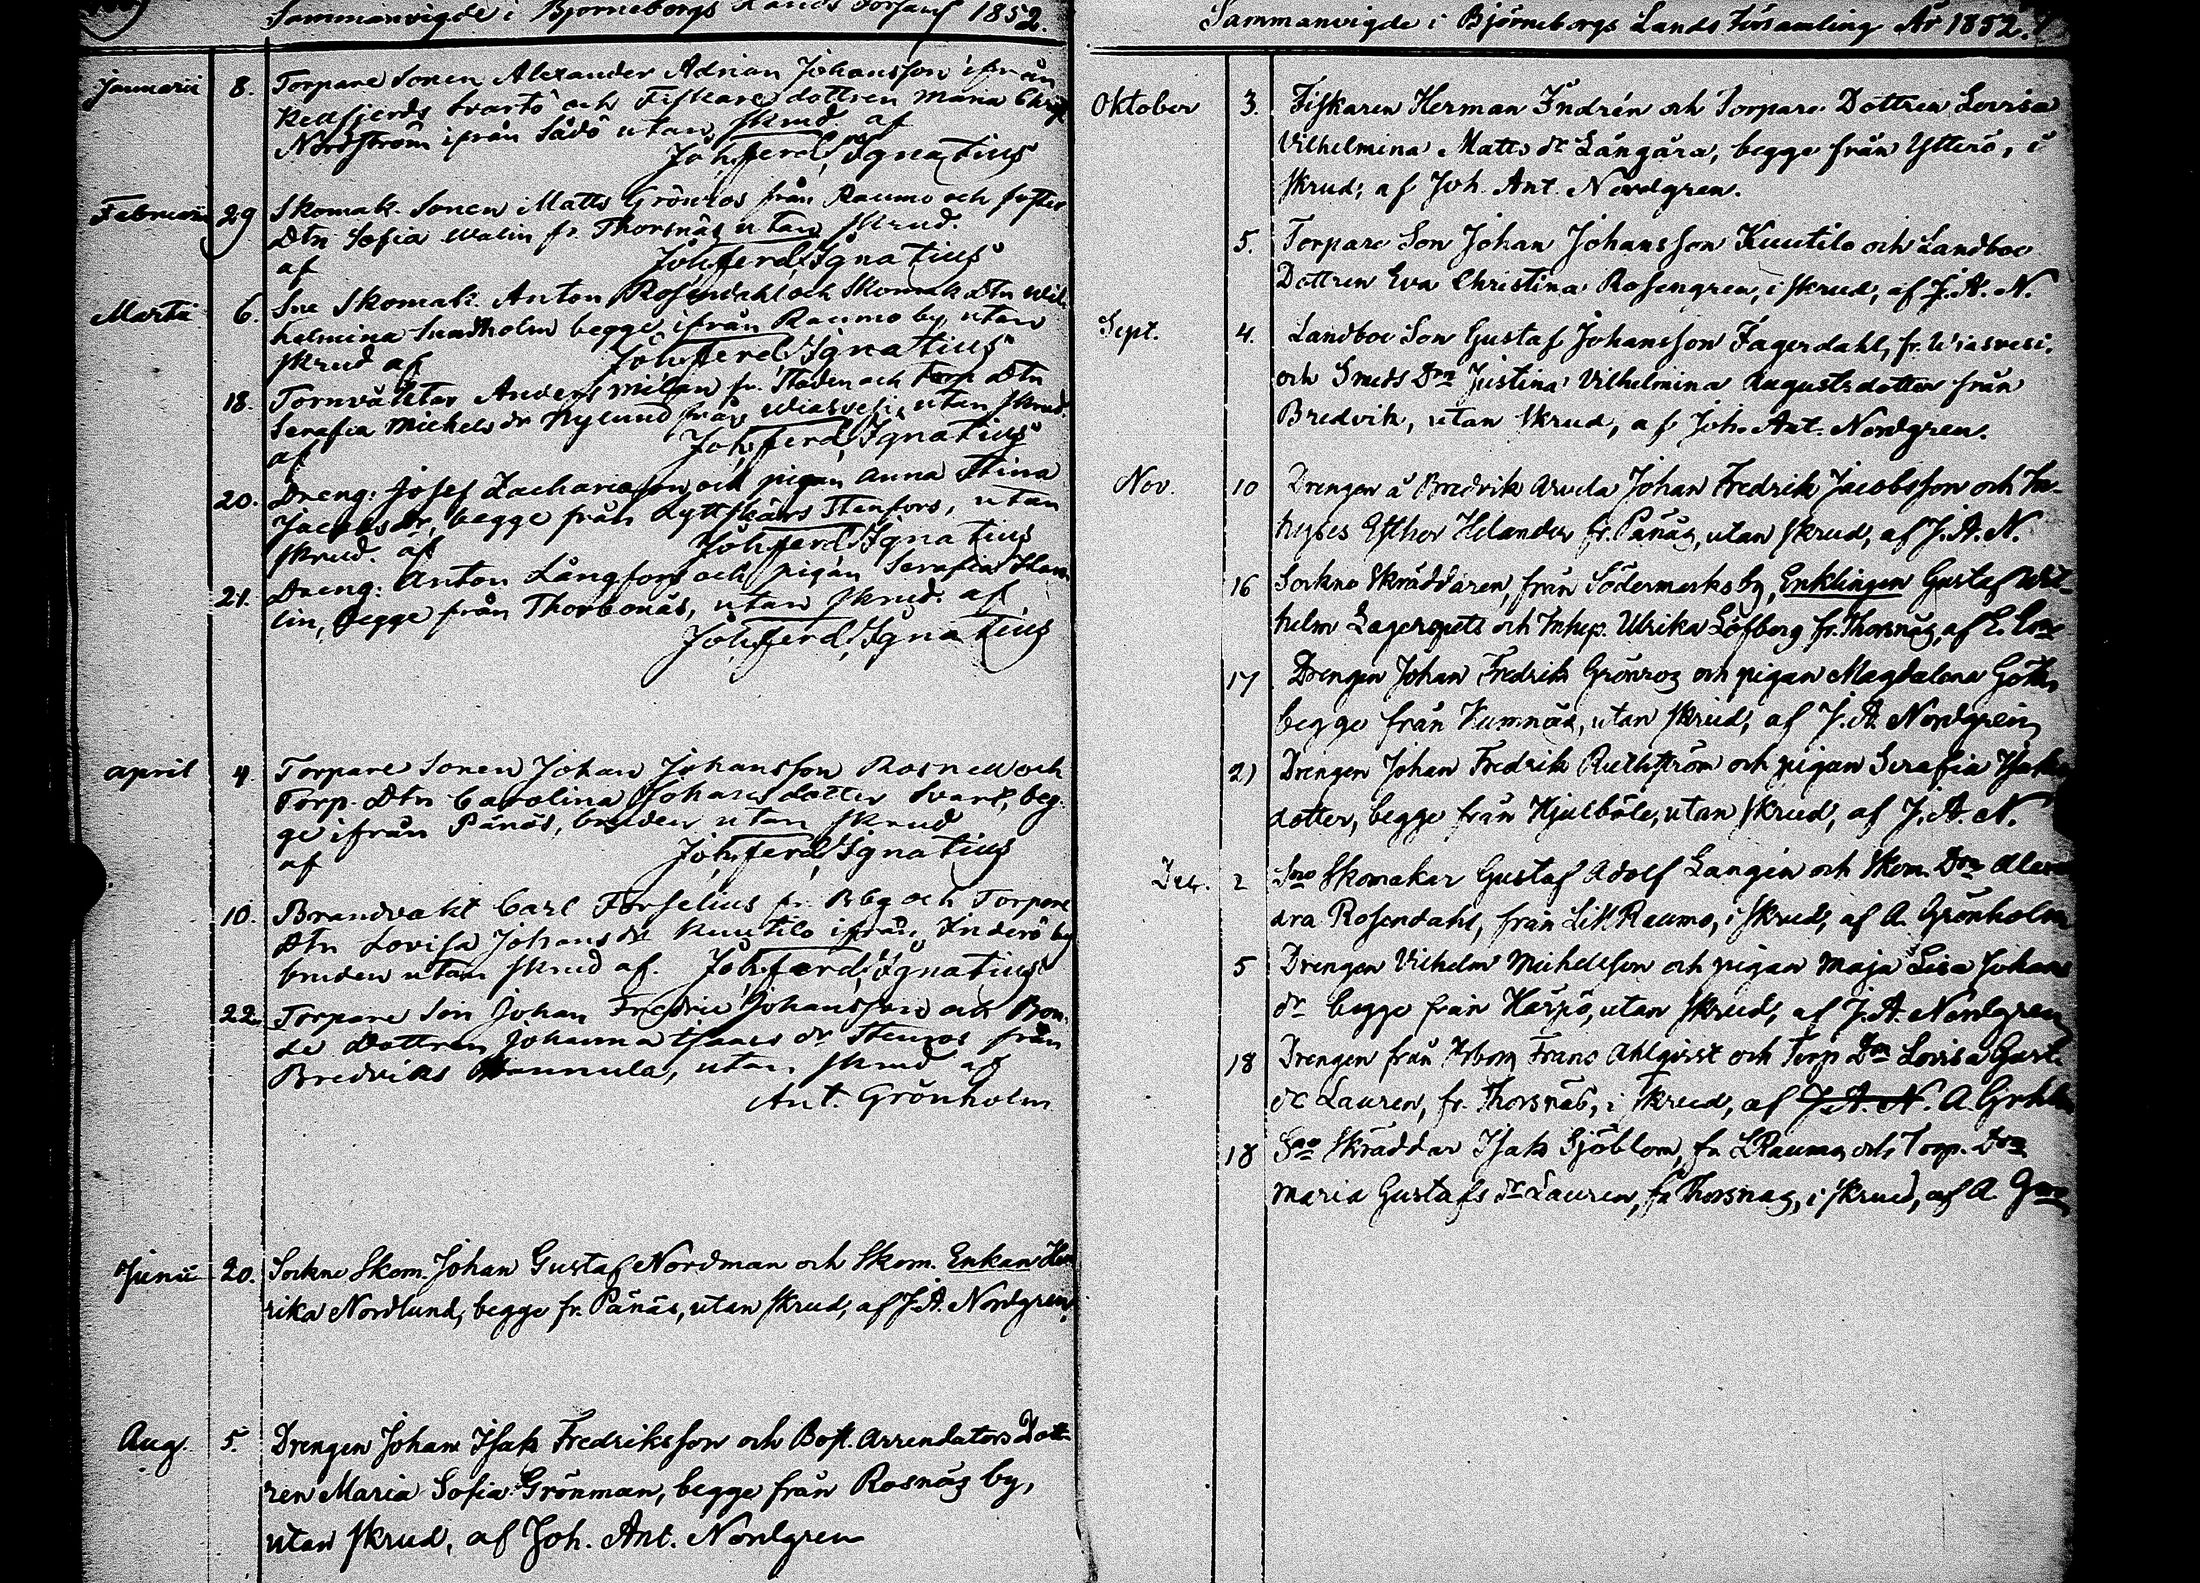 Sammanvigde i Björneborgs Lands Församl 1852.
Januarii 8. Torpare Sonen Alexander Adrian Johansson ifrån
Kellfjerds Svartö och Fiskare dottren Maria Christ
Nordström ifrån Sådö utan skrud af
Joh. ferd. Ignatius
Februarii 29 Skomak. Sonen Matts Grönros från Raumo och foster
Dtn Sofia Malin fr. Thorsnäs utan skrud.
af Joh. ferd. Ignatius
Martii 6. Sne Skomak. Anton Rosendahl och Skomak Dtn Wil-
helmina Sundholm begge ifrån Raumo by utan
skrud af Joh. ferd. Ignatius
18. Tornväktar Anders Milan fr. Staden och torp Dtn
Serafia Michels dr Nylund från Wiasvesi, utan skrud.
af Joh. ferd. Ignatius
20. Dreng: Josef Zachariasson och pigan Anna Stina
Jacobs dr, begge från Lyttskärs Stenfors, utan
skrud. af Joh. ferd. Ignatius
21. Dreng: Anton Långfors och pigan Serafia
lin, begge från Thorbonäs, utan skrud. af
Joh. ferd. Ignatius
April 4. Torpare Sonen Johan Johansson Rosnell och
Torp. Dtn Carolina Johansdotter Svart, beg-
ge ifrån Pänäs, bruden utan skrud
af Joh. ferd. Ignatius
10. Brandvakt Carl Forselius fr. Bbg och Torpare
Dtn Lovisa Johans dr Kuutilo ifrån Inderö by
bruden utan skrud af. Joh. ferd. Ignatius
22. Torpare Son Johan Fredric Johansson och Bon-
de Dottren Johanna Isaacs dr Stenros från
Bredviks Hannula, utan skrud af
Ant. Grönholm
Junii 20. Sockne Skom. Johan Gustaf Nordman och Skom. Enkan Hen
rika Nordlund, begge fr. Pänäs, utan skrud, af J. A. Nordgren.
Aug. 5. Drengen Johan Isak Fredriksson och Bost. Arrendators Dott-
ren Maria Sofia Grönman, begge från Rosnäs by,
utan skrud, af Joh. Ant. Nordgren
Sammanvigde i Björneborgs Lands Församling År 1852.
Oktober 3. Fiskaren Herman Indrén och Torpare Dottren Lovisa
Vilhelmina Matts dr Långåra, begge från Ytterö, i
skrud; af Joh. Ant. Nordgren.
5. Torpare Son Johan Johansson Kuutilo och Landboe
Dottren Eva Christina Rosengren, i skrud, af J. A. N.
Sept. 4. Landboe Son Gustaf Johansson Fagerdahl, fr. Wiasvesi.
och Smeds Drn Justina Vilhelmina Augustsdotter från
Bredvik, utan skrud, af Joh. Ant. Nordgren.
Nov. 10 Drengen å Bredvik Arvela Johan Fredrik Jacobsson och In-
hyses Esther Helander fr. Pänäs, utan skrud, af J. A. N.
16 Sockne Skräddaren, från Södermarks by, Enklingen Gustaf Wil-
helm Lagerspets och Inhys. Ulrika Löfberg fr. Thorsnäs, af E.
17 Drengen Johan Fredrik Grönros och pigan Magdalena
begge från Kumnäs, utan skrud, af J. A. Nordgren
21 Drengen Johan Fredrik Ruthström och pigan Serafia Isaks
dotter, begge från Hjulböle, utan skrud, af J. A. N.
Dec. 2 Sne Skomakar Gustaf Adolf Langén och Skom. Drn
dra Rosendahl, från Lill Raumo, i skrud, af A. Grönholm
5 Drengen Vilhelm Michelsson och pigan Maja Lisa Johans
dr begge från Harjo, utan skrud, af J. A. Nordgren
18 Drengen från Frans Ahlqvist och Torp Drn Lovisa Gust.
dr Lauren, fr. Thorsnäs, i skrud, af J. A. N. A. Grhlm
18 Sne Skräddar Isak Sjöblom, fr. L Raumo, och Torp. Drn
Maria Gustafs dr Lauren, fr Thorsnäs, i skrud, af A.